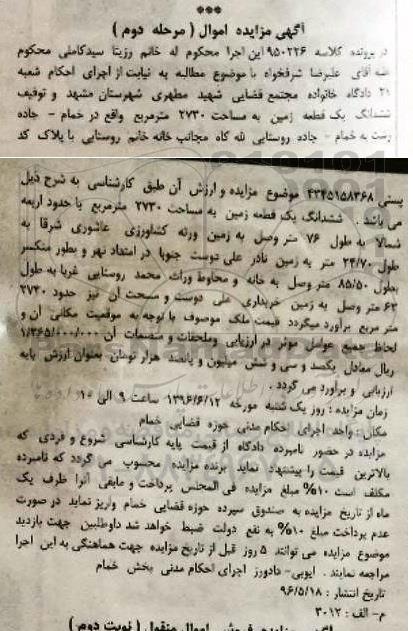 ***
آگهی مزایده اموال ( مرحله دوم )
در پرونده کلاسه ۹۵۰۲۲۶ این اجرا محکوم له خانم رزیتا سیدکاملی محکوم
علیه آقای علیرضا شرفخواه با موضوع مطالبه به نیابت از اجرای احکام شعبه
۲۱ دادگاه خانواده مجتمع قضایی شهید مطهری شهرستان مشهد و توقیف
ششدانگ یک قطعه زمین به مساحت ۲۷۳۰ مترمربع واقع در خمام - جاده
رشت به خمام - جاده روستایی لله کاه مجانب خانه خانم روستایی با پلاک کد
پستی ۴۳۴۵۱۵۸۳۶۸ موضوع مزایده و ارزش آن طبق کارشناسی به شرح ذیل
می باشد . ششدانگ یک قطعه زمین به مساحت ۲۷۳۰ مترمربع با حدود اربعه
شمالا به طول ۷۶ متر وصل به زمین ورثه کشاورزی عاشوری شرقا به
طول ۲۴/۷۰ متر به زمین نادر علی دوست جنوبا در امتداد نهر و بطور منکسر
بطول ۸۵/۵۰ متر وصل به خانه و محاوط وراث محمد روستایی غربا به طول
۶۳ متر وصل به زمین خریداری علی دوست و مسحت آن نیز حدود ۲۷۳۰
متر مربع برآورد میگردد قیمت ملک موصوف با توجه به موقعیت مکانی آن و
لحاظ جمیع عوامل موثر در ارزیابی وملحقات و منضمات آن ۱/۳۶۵/۰۰۰/۰۰۰
ریال معادل یکصد و سی و شش میلیون و پانصد هزار تومان بعنوان ارزش پایه
ارزیابی و برآورد می گردد .
زمان مزایده : روز یک شنبه مورخه ۱۳۹۶/۶/۱۲ ساعت ۹ الی ۱۰
مکان : واحد اجرای احکام مدنی حوزه قضایی خمام
مزایده در حضور نامبرده دادگاه از قیمت پایه کارشناسی شروع و فردی که
بالاترین قیمت را پیشنهاد نماید برنده مزایده محسوب می گردد که نامبرده
مکلف است ۱۰% مبلغ مزایده فی المجلس پرداخت و مابقی آنرا ظرف یک
ماه از تاریخ مزایده به صندوق سپرده حوزه قضایی خمام واریز نماید در صورت
عدم پرداخت مبلغ ۱۰% به نفع دولت ضبط خواهد شد داوطلبین جهت بازدید
موضوع مزایده می توانند ۵ روز قبل از تاریخ مزایده جهت هماهنگی به این اجرا
مراجعه نمایند . ایوبی- دادورز اجرای احکام مدنی بخش خمام
تاریخ انتشار : ۹۶/۵/۱۸
م- الف : ۳۰۱۲